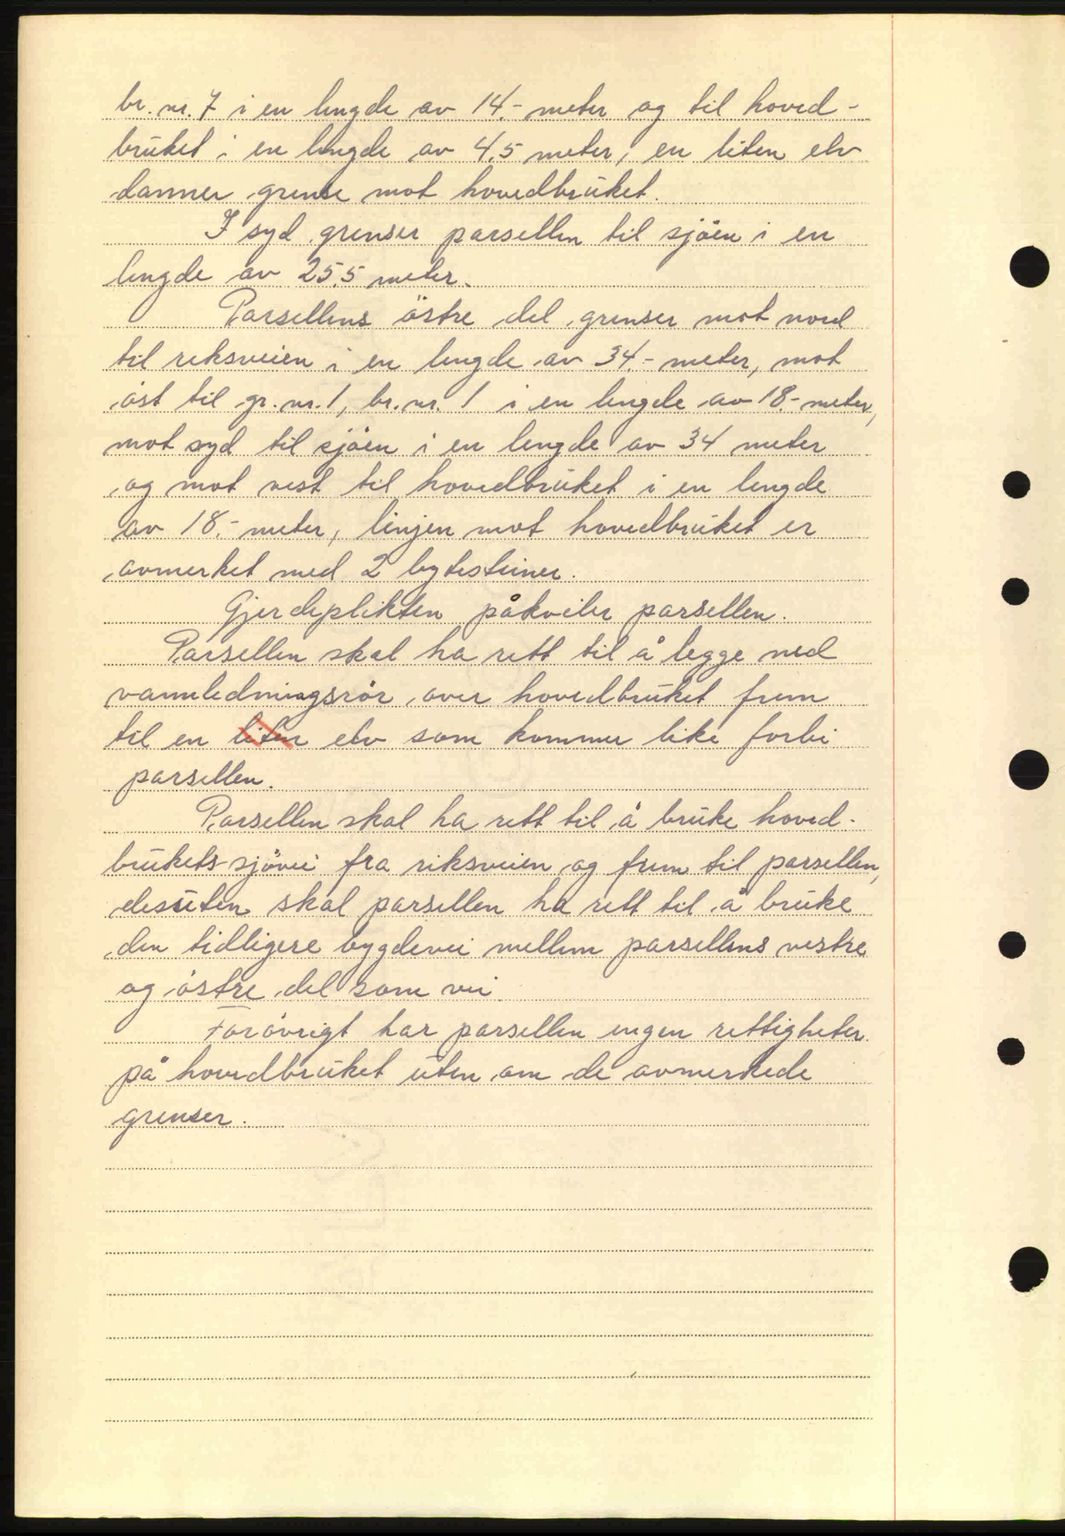 br. nr. 7 i en lengde av 14.- meter og til hoved-
bruket i en lengde av 4.5 meter, en liten elv
danner grense mot hovedbruket.
I syd grenser parsellen til sjöen i en
lengde av 25.5 meter.
Parsellens östre del grenser mot nord
til riksveien i en lengde av 34.- meter, mot
öst til gr. nr. 1, br. nr. 1 i en lengde av 18.- meter,
mot syd til sjöen i en lengde av 34 meter
og mot vest til hovedbruket i en lengde
av 18.- meter, linjen mot hovedbruket er
avmerket med 2 bytesteiner.
Gjerdeplikten påkviler parsellen.
Parsellen skal ha rett til å legge ned
vannledningsrör over hovedbruket frem
til en liten elv som kommer like forbi
parsellen.
Parsellen skal ha rett til å bruke hoved-
brukets sjövei fra riksveien og frem til parsellen,
desuten skal parsellen ha rett til å bruke
den tidligere bygdevei mellem parsellens vestre
og östre del som vei
Forövrigt har parsellen ingen rettigheter
på hovedbruket uten om de avmerkede
grenser.